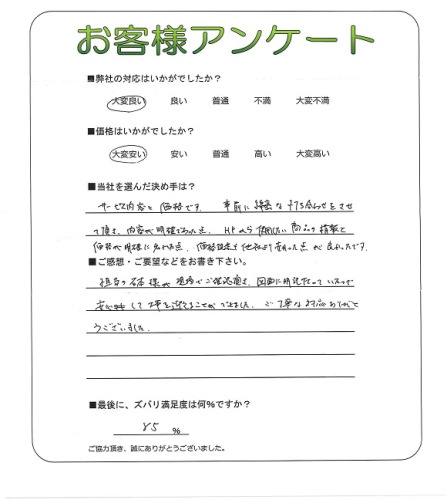 お客様アンケート
■弊社の対応はいかがでしたか？
大変良い 良い 普通 不満 大変不満
■価格はいかがでしたか？
大変安い 安い 普通 高い 大変高い
■当社を選んだ決め手は？
サービス内容と価格です。事前に綿密な打ち合わせをさせ
て頂き、内容が明確であった点、HPから 商品の
価格が明確に 点、価格設定も他社より安かった点が良かったです。
■ご感想・ご要望などをお書き下さい。
担当の 様が現場でご確認頂き、図面に明記 
安心して 事を ことができました。ご丁寧な対応ありがと
うございました。
■最後に、ズバリ満足度は何％ですか？
85 ％
ご協力頂き、誠にありがとうございました。